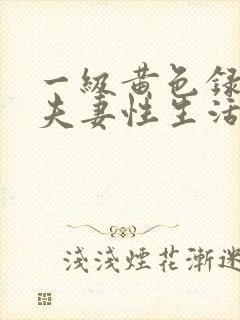 一級黄色録
夫妻性生活
淺淺煙花漸迷